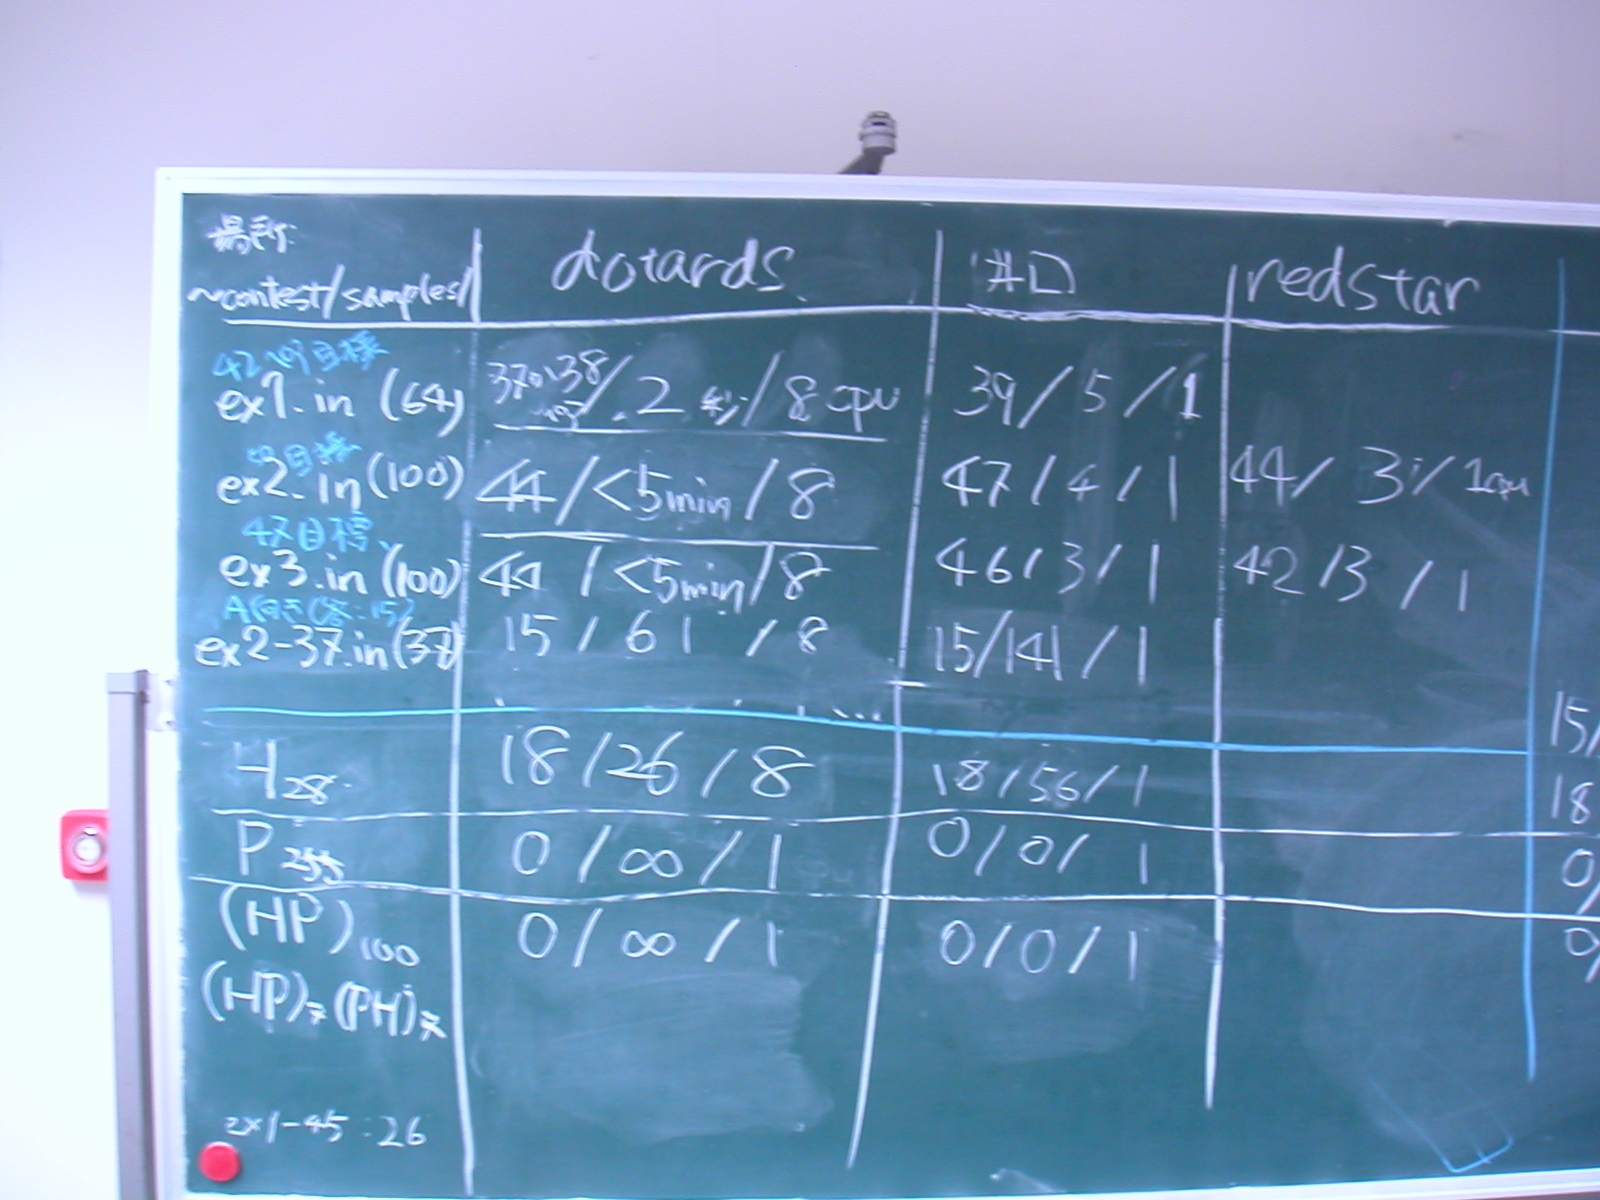 場所:
~contest/samples/ dotards #D redstar
42が目標
ex1.in (64) 37or38 / .2 秒 / 8cpu 39 / 5 / 1
目標
ex2.in (100) 44 / <5min / 8 47 / 4 / 1 44 / 3 / 1cpu
47目標
ex3.in (100) 44 / <5min / 8 46 / 3 / 1 42 / 3 / 1
ex2-37.in (37) 15 / 61 / 8 15 / 141 / 1
15/
H28 18 / 26 / 8 18 / 56 / 1
18
P255 0 / ∞ / 1 0 / 0 / 1
0/
(HP)100 0 / ∞ / 1 0 / 0 / 1
0/
(HP)7 (PH)7
ex1-45:26